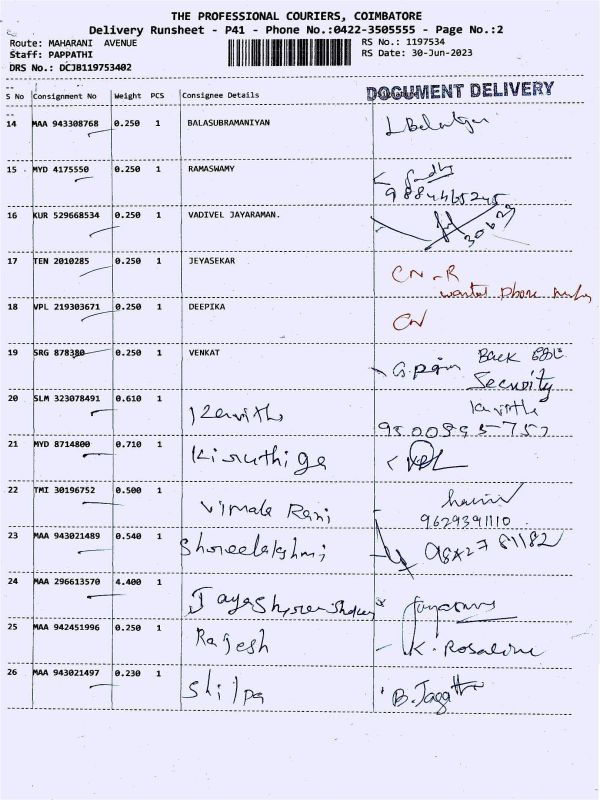 THE PROFESSIONAL COURIERS, COIMBATORE
Delivery Runsheet - P41 - Phone No.:0422-3505555 - Page No.:2
Route: MAHARANI AVENUE RS No.: 1197534
Staff: PAPPATHI RS Date: 30-Jun-2023
DRS No.: DCJB119753402
S No Consignment No Weight PCS Consignee Details DOCUMENT DELIVERY
14 MAA 943308768 0.250 1 BALASUBRAMANIYAN
15 MYD 4175550 0.250 1 RAMASWAMY
9884465245
16 KUR 529668534 0.250 1 VADIVEL JAYARAMAN.
30623
17 TEN 2010285 0.250 1 JEYASEKAR CN-R
wanted phone
18 VPL 219303671 0.250 1 DEEPIKA CN
19 SRG 878380 0.250 1 VENKAT Back
Security
20 SLM 323078491 0.610 1 Kavitha Kavitha
21 MYD 8714800 0.710 1 Kiruthiga
22 TMI 30196752 0.500 1 Vimala Rani
9629391110
23 MAA 943021489 0.540 1 Shreelakshmi
24 MAA 296613570 4.400 1
25 MAA 942451996 0.250 1 Rajesh K. Rosaline
26 MAA 943021497 0.230 1 Shilpa B.